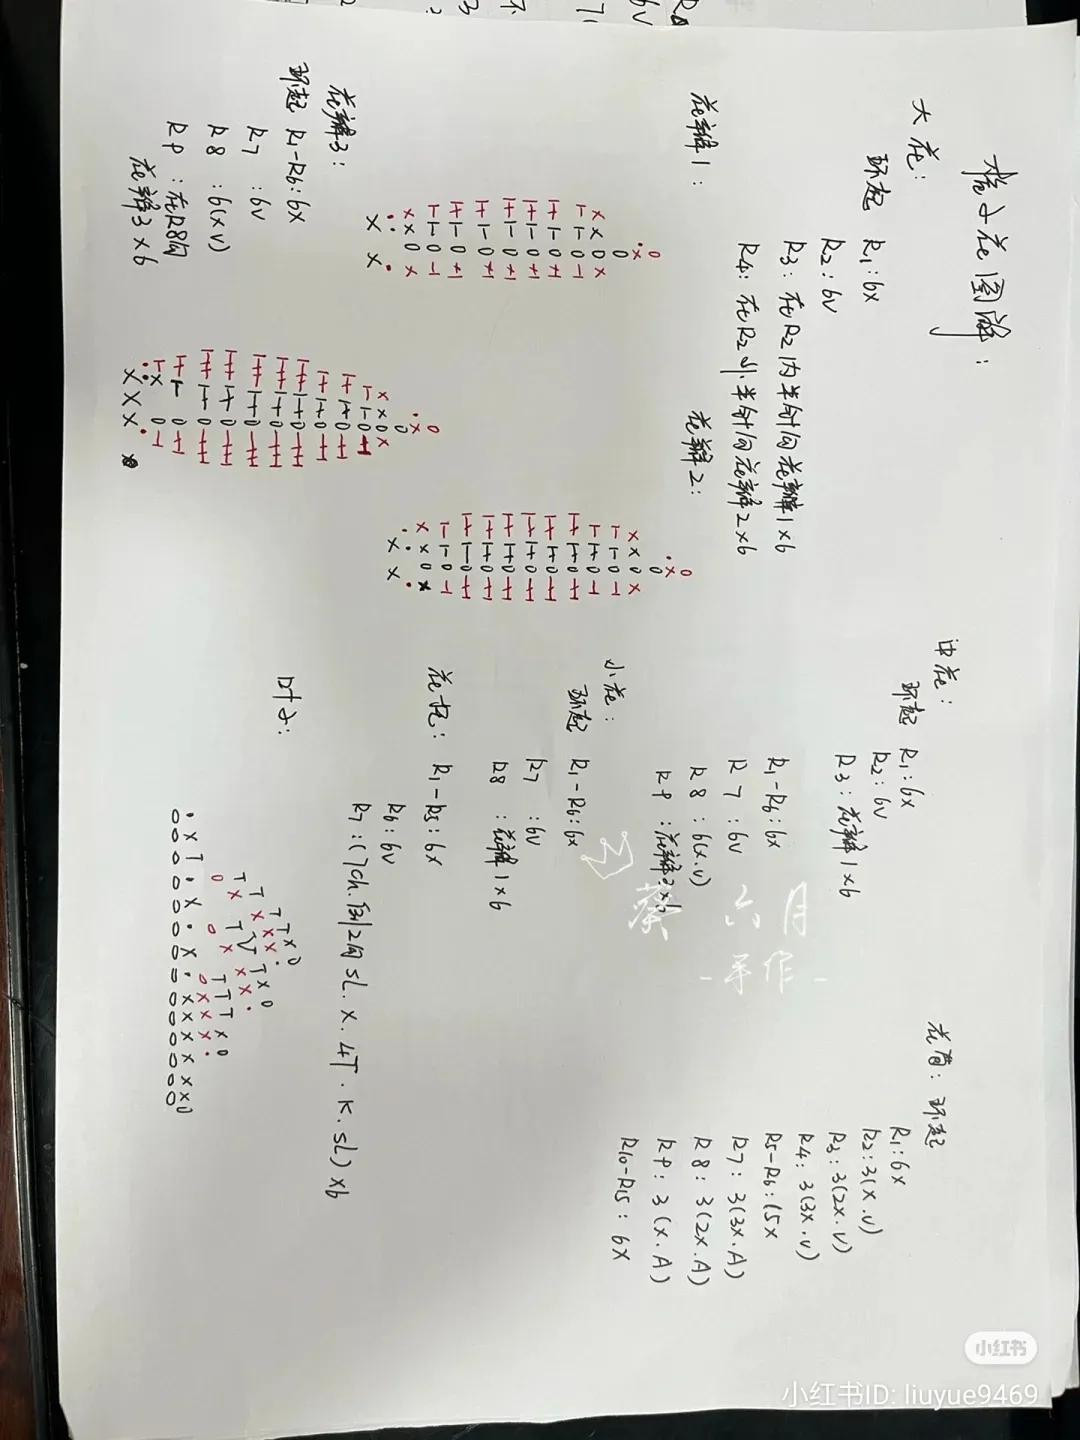 栀子花图解:
大花:
环起 R1:6x
R2:6v
R3:在R2内半针钩花瓣1x6
R4:在R2外半针钩花瓣2x6
花瓣1:
花瓣2:
花瓣3:
环起 R1-R6:6x
R7:6v
R8:6(xv)
R9:在R8钩
花瓣3x6
中花:
环起 R1:6x
R2:6v
R3:花瓣1x6
R1-R6:6x
R7:6v
R8:6(x.v)
R9:花瓣2x6
小花:
环起 R1-R6:6x
R7:6v
R8:花瓣1x6
花托:R1-R5:6x
R6:6v
R7:(7ch.倒2钩SL.x.4T.K.SL)x6
叶子:
花苞:环起
R1:6x
R2:3(x.v)
R3:3(2x.v)
R4:3(3x.v)
R5-R6:15x
R7:3(3x.A)
R8:3(2x.A)
R9:3(x.A)
R10-R15:6x
葵 六月
-手作-
小红书
小红书ID: liuyue9469